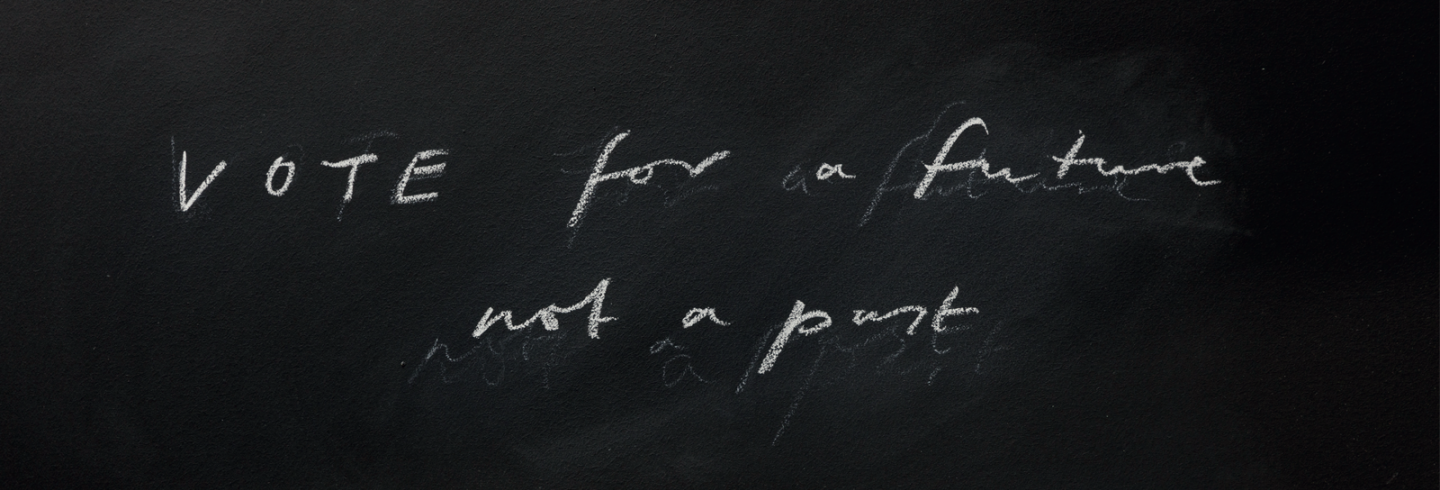 VOTE for a future
not a past